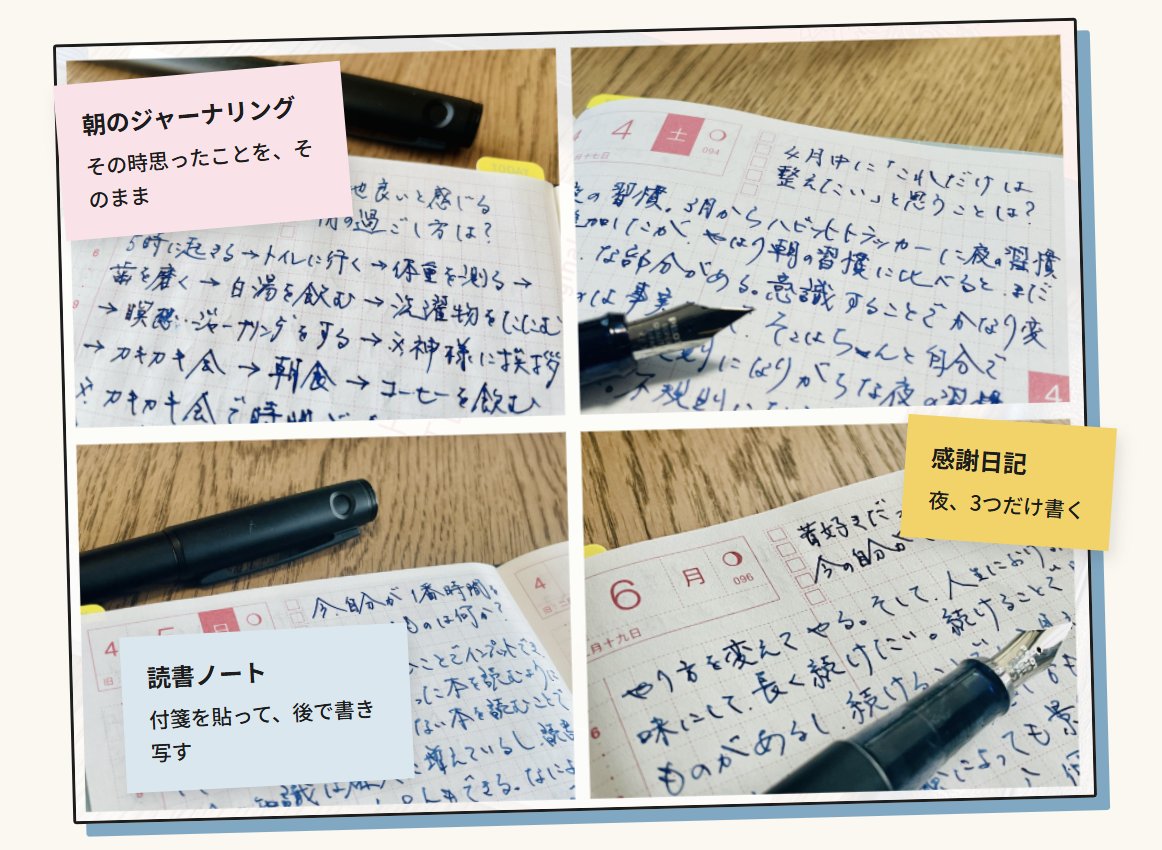 朝のジャーナリング
その時思ったことを、そ
のまま
TODAY
也良いと感じる
の過ごし方は？
5時に起きる→トイレに行く→体重を測る→
歯を磨く→白湯を飲む→洗濯物を
→瞑想・ジャーナリングをする→神様に挨拶
→カキカキ会→朝食→コーヒーを飲む
カキカキ会で時間
4 土
094
月十七日
4月中に「これだけは
整えたい」と思うことは？
夜の習慣。3月からハビットトラッカーに夜の習慣
追加したが、やはり朝の習慣に比べると、まだ
な部分がある。意識することでかなり変
は事実
そこはちゃんと自分で
になりがちな夜の習慣
不規則に
4
読書ノート
付箋を貼って、後で書き
写す
4 5 日
4
今、自分が1番時間を
ものは何か？
ことでインプットでき
に本を読むように
ない本を読むことで
増えているし、読書
もできる。なによ
感謝日記
夜、3つだけ書く
6 月
096
二月十九日
昔好きだっ
今の自分が
やり方を変えてやる。そして、人生におい
味にして、長く続けたい。続けることで
ものがあるし、続ける
によっても景
6